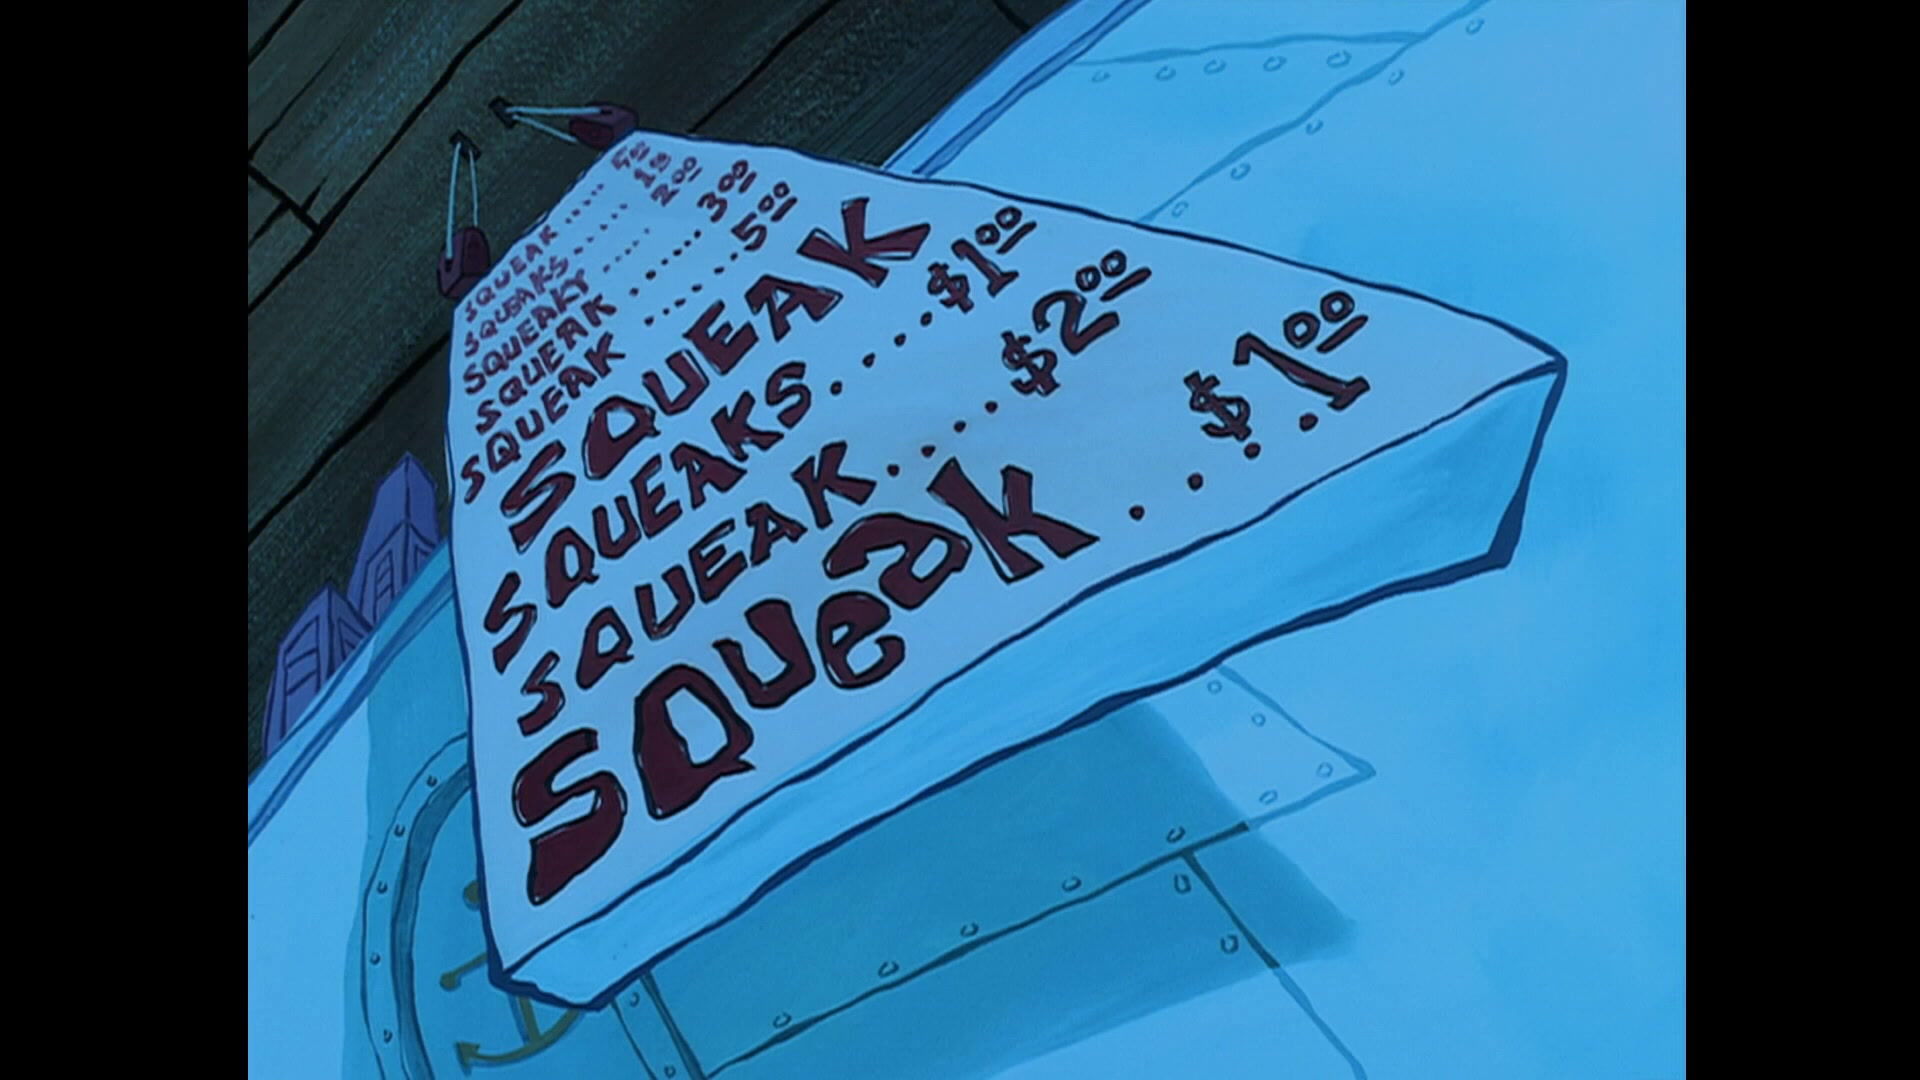 SQUEAK.....
SQUEAKS...... 1
SQUEAKY ..... 2.00
SQUEAK ...... 3.00
SQUEAK ...... 5.00
SQUEAK
SQUEAKS.... $1.00
SQUEAK.... $2.00
SQueak .... $1.00